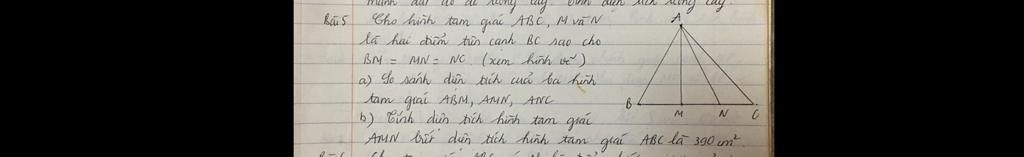 mảnh đất đó để trồng cây. Tính diện tích trồng cây.
Bài 5 Cho hình tam giác ABC, M và N
là hai điểm trên cạnh BC sao cho
BM = MN = NC (xem hình vẽ)
a) So sánh diện tích của ba hình
tam giác ABM, AMN, ANC
b) Tính diện tích hình tam giác
AMN biết diện tích hình tam giác ABC là 390 cm²
A
B M N C